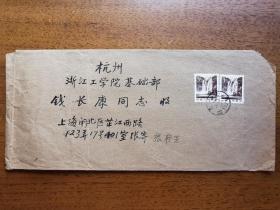 杭州
浙江工学院基础部
钱长康同志收
上海闸北区芷江西路
123弄17号401室张寄